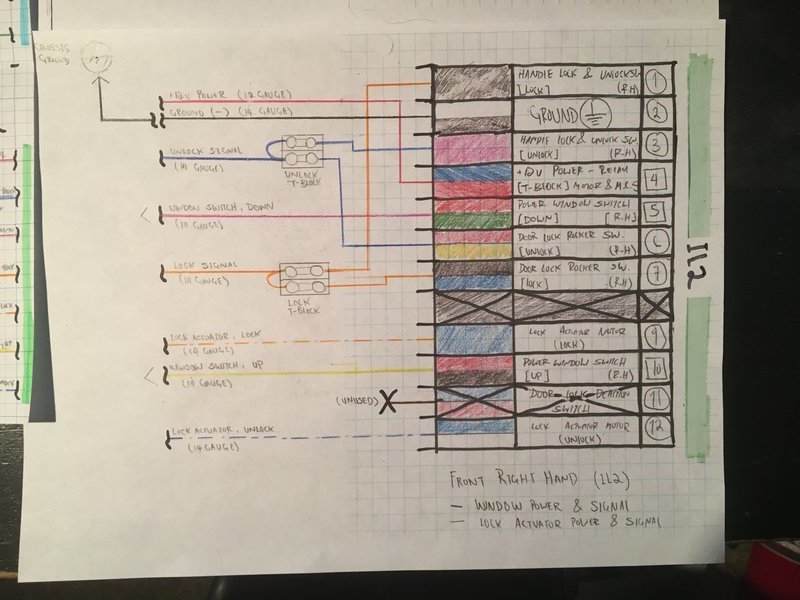 CHASSIS
GROUND
+12V POWER (12 GAUGE)
GROUND (-) (14 GAUGE)
UNLOCK SIGNAL
(14 GAUGE)
UNLOCK
T-BLOCK
WINDOW SWITCH, DOWN
LOCK SIGNAL
LOCK
T-BLOCK
LOCK ACTUATOR, LOCK
(14 GAUGE)
WINDOW SWITCH, UP
(14 GAUGE)
(UNUSED)
LOCK ACTUATOR, UNLOCK
(14 GAUGE)
HANDLE LOCK & UNLOCK SW.
[LOCK] (R.H) 1
GROUND 2
HANDLE LOCK & UNLOCK SW.
[UNLOCK] (R.H) 3
+12V POWER - RELAY
[T-BLOCK] MOTOR & 4
POWER WINDOW SWITCH
[DOWN] [R.H] 5
DOOR LOCK ROCKER SW.
[UNLOCK] (R.H) 6
DOOR LOCK ROCKER SW.
[LOCK] (R.H) 7
LOCK ACTUATOR MOTOR
(LOCK) 9
POWER WINDOW SWITCH
[UP] (R.H) 10
DOOR-LOCK DETECTION
SWITCH 11
LOCK ACTUATOR MOTOR
(UNLOCK) 12
IL2
FRONT RIGHT HAND (IL2)
- WINDOW POWER & SIGNAL
- LOCK ACTUATOR POWER & SIGNAL